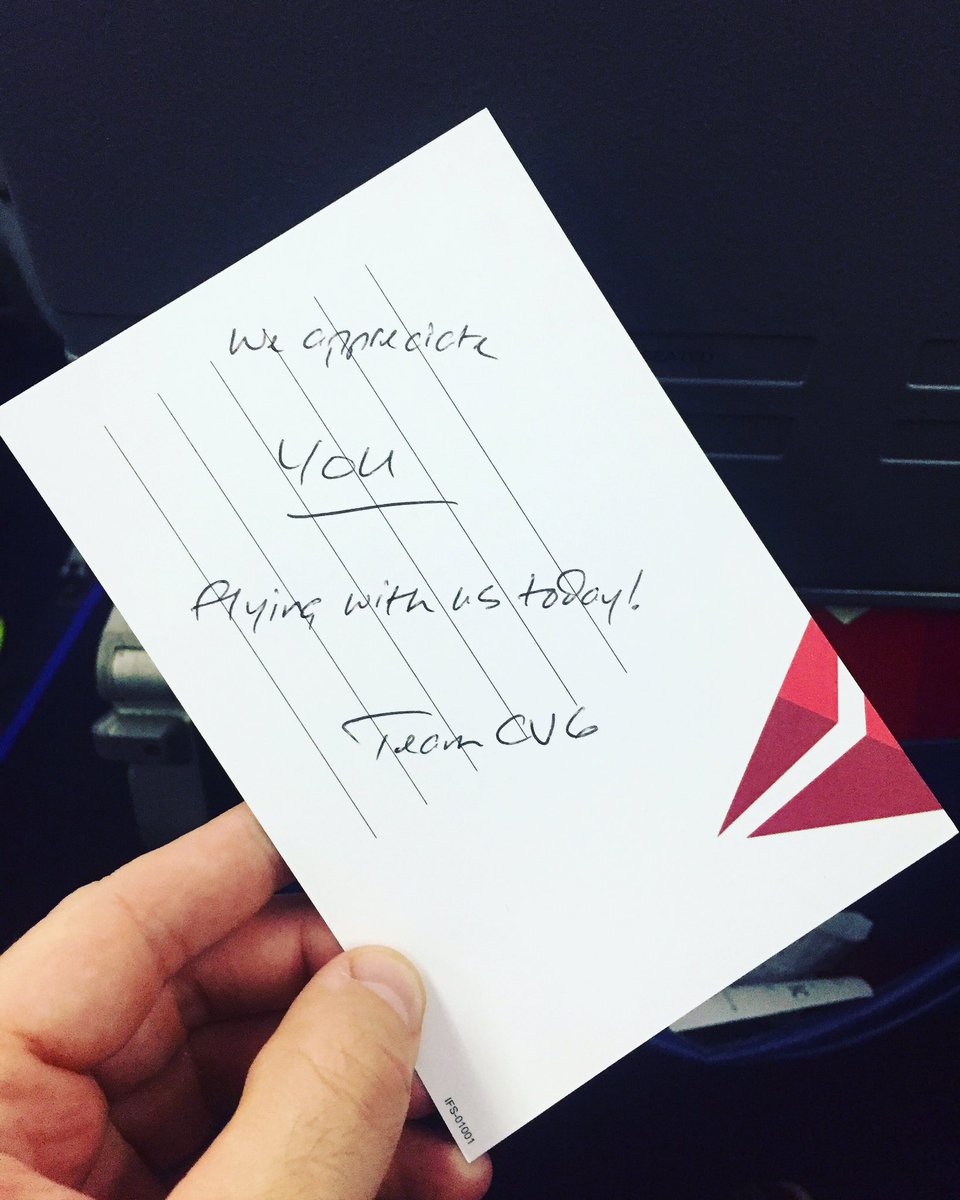 We appreciate
YOU
flying with us today!
Team CVG
IFS-01001